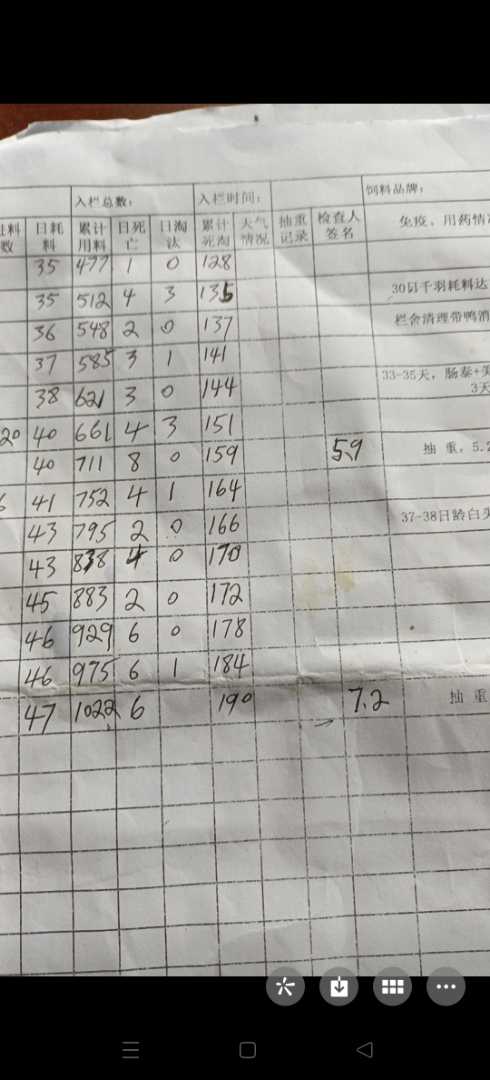 入栏总数： 入栏时间： 饲料品牌：
数 日耗料 累计用料 日死亡 日淘汰 累计死淘 天气情况 抽重记录 检查人签名 免疫、用药情
35 477 1 0 128
35 512 4 3 135 30日千羽耗料达
36 548 2 0 137 栏舍清理带鸭消
37 585 3 1 141
38 621 3 0 144 33-35天，肠泰+ 3天
20 40 661 4 3 151
40 711 8 0 159 5.9 抽 重，5.2
6 41 752 4 1 164
43 795 2 0 166 37-38日龄白头
43 838 4 0 170
45 883 2 0 172
46 929 6 0 178
46 975 6 1 184
47 1022 6 190 7.2 抽 重